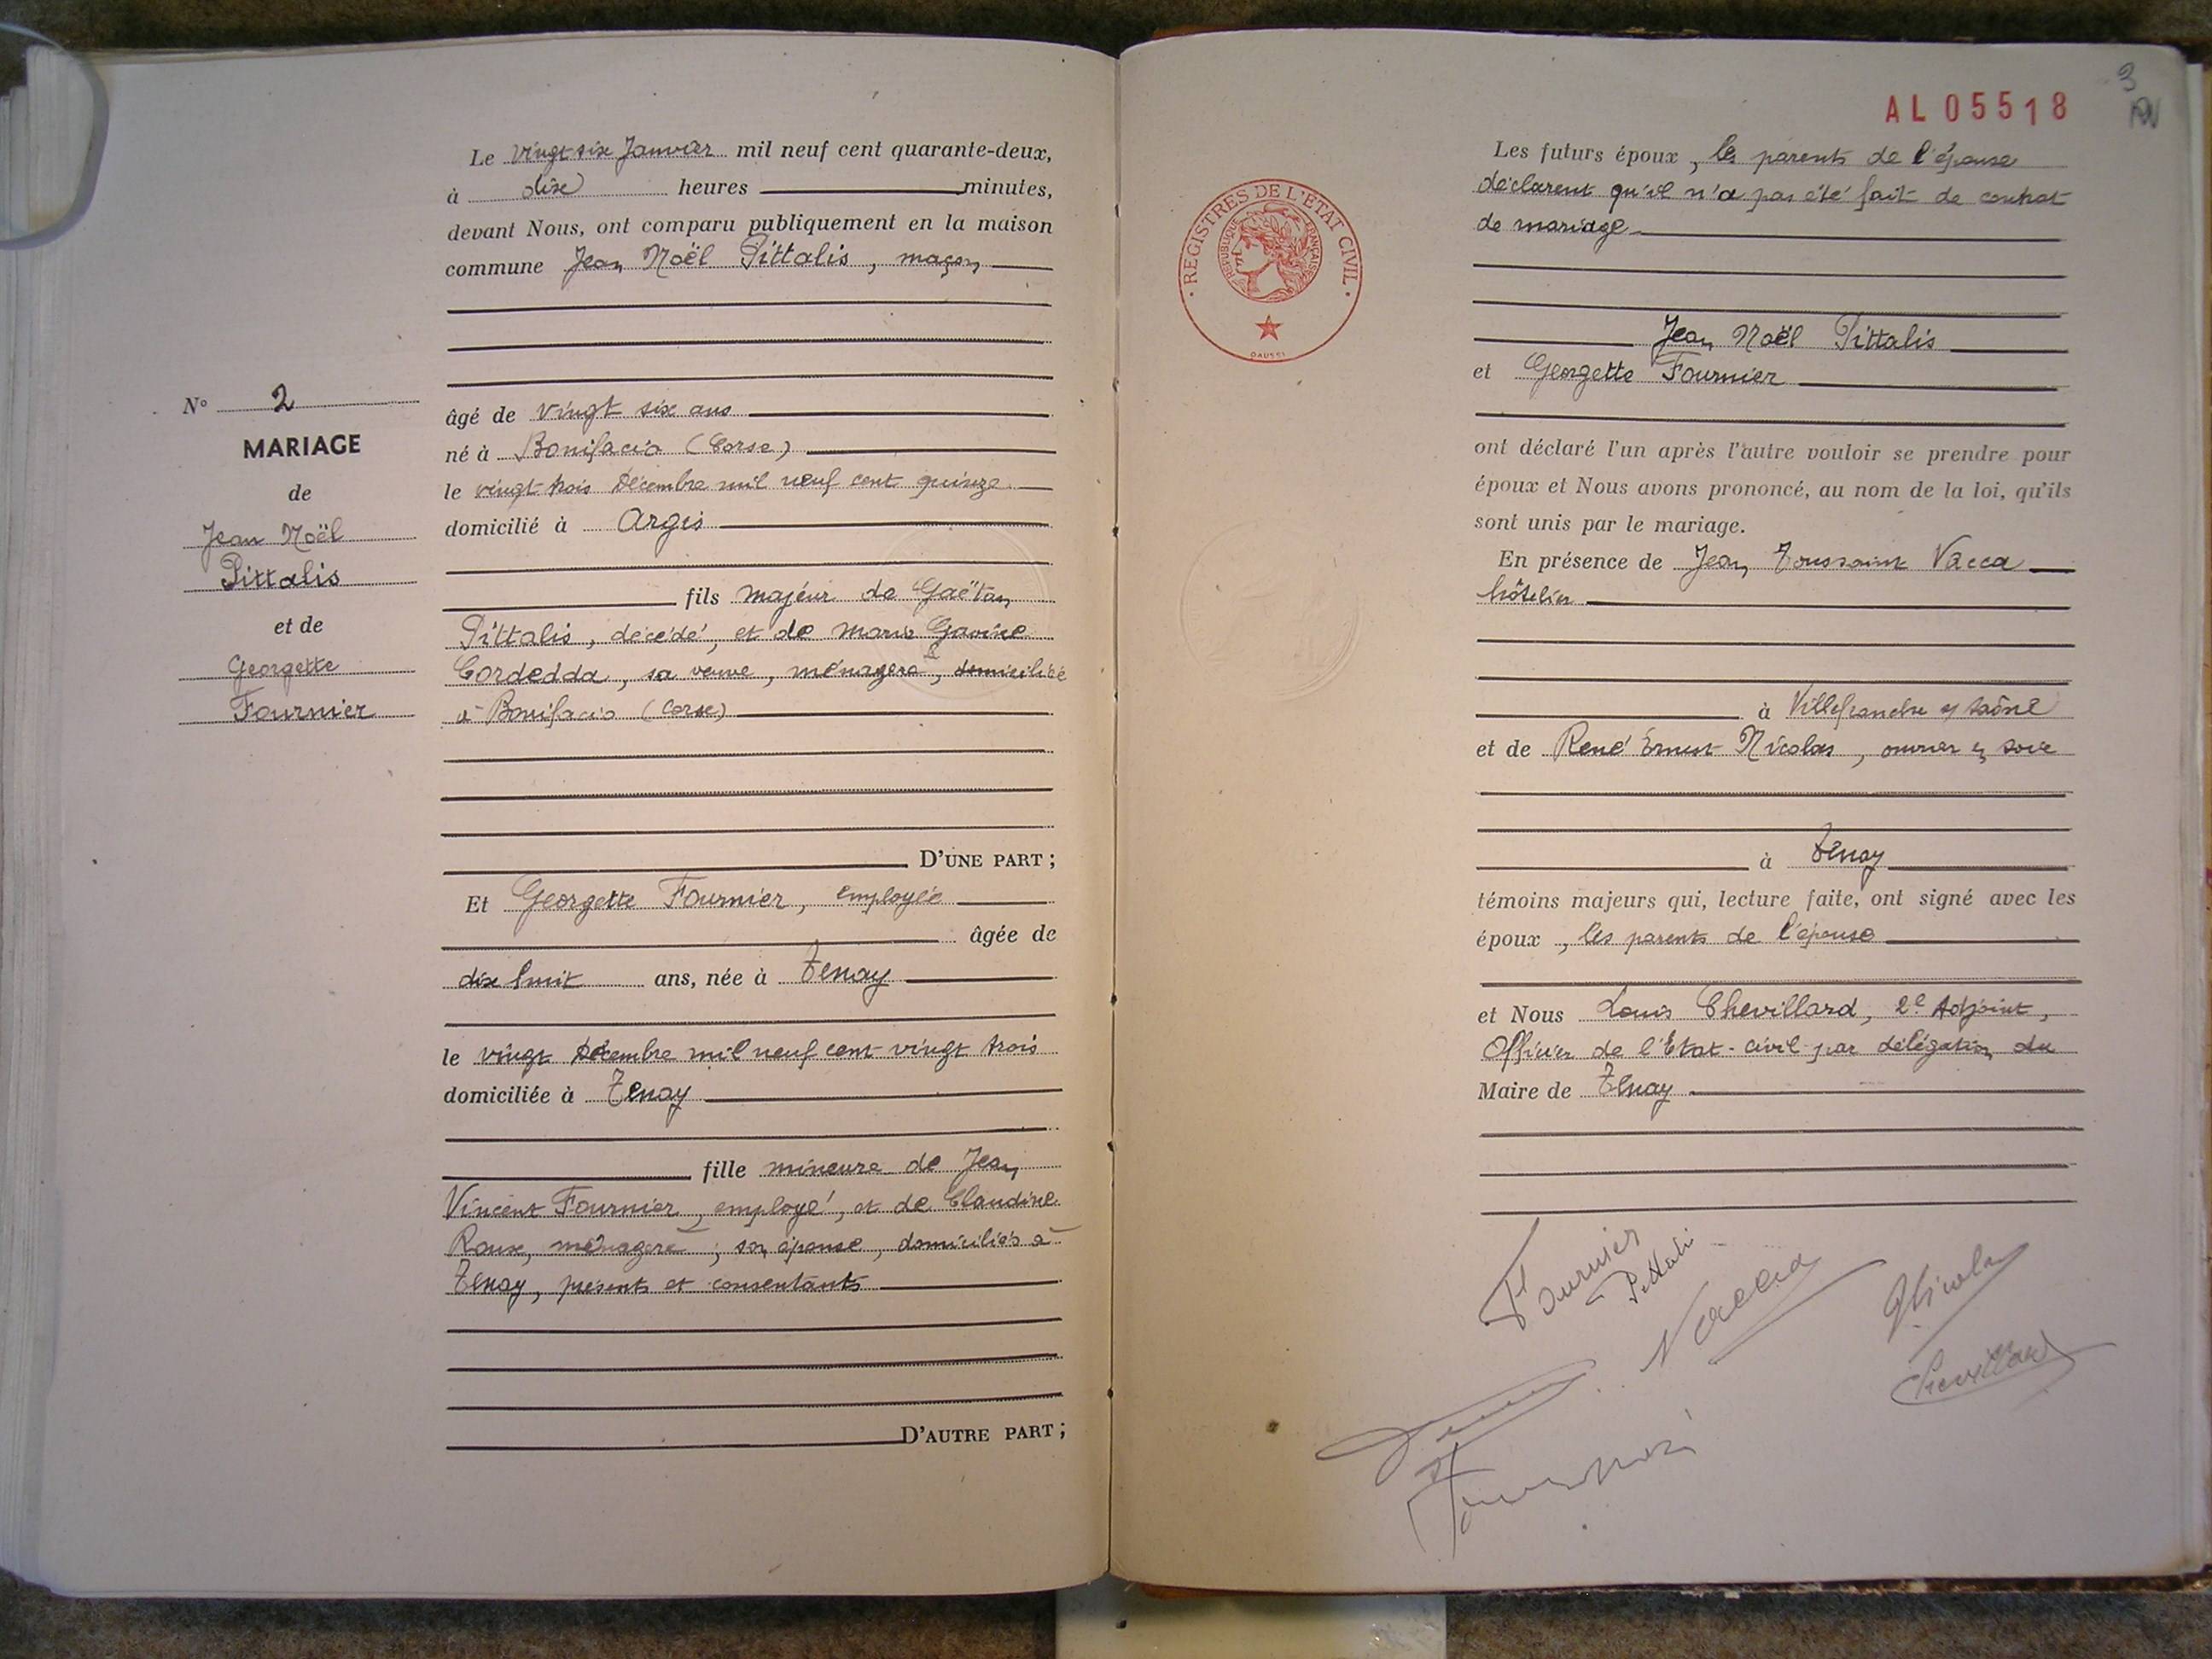 Le vingt-six Janvier mil neuf cent quarante-deux,
à dix heures minutes,
devant Nous, ont comparu publiquement en la maison
commune Jean Noël Pittalis, maçon
âgé de vingt six ans
né à Bonifacio (Corse)
le vingt trois Décembre mil neuf cent quinze
domicilié à Argis
fils majeur de Gaëtan
Pittalis, décédé, et de Marie Gavine
Cordedda, sa veuve, ménagère, domiciliée
à Bonifacio (Corse)
D'UNE PART ;
Et Georgette Fournier, employée
âgée de
dix huit ans, née à Tenay
le vingt Décembre mil neuf cent vingt trois
domiciliée à Tenay
fille mineure de Jean
Vincent Fournier, employé, et de Claudine
Roux, ménagère, son épouse, domiciliés à
Tenay, présents et consentants
D'AUTRE PART ;
N° 2
MARIAGE
de
Jean Noël
Pittalis
et de
Georgette
Fournier
3
AL05518
Les futurs époux, les parents de l'épouse
déclarent qu'il n'a pas été fait de contrat
de mariage
Jean Noël Pittalis
et Georgette Fournier
ont déclaré l'un après l'autre vouloir se prendre pour
époux et Nous avons prononcé, au nom de la loi, qu'ils
sont unis par le mariage.
En présence de Jean Toussaint Vacca
hôtelier
à Villefranche s/ Saône
et de René Ernest Nicolas, ouvrier en soie
à Tenay
témoins majeurs qui, lecture faite, ont signé avec les
époux, les parents de l'épouse
et Nous Louis Chevillard, 2e Adjoint,
Officier de l'Etat-civil par délégation du
Maire de Tenay
REGISTRES DE L'ETAT CIVIL
REPUBLIQUE FRANÇAISE
DAUSSY
Fournier
Pittalis
Vacca
Nicolas
Chevillard
Fournier